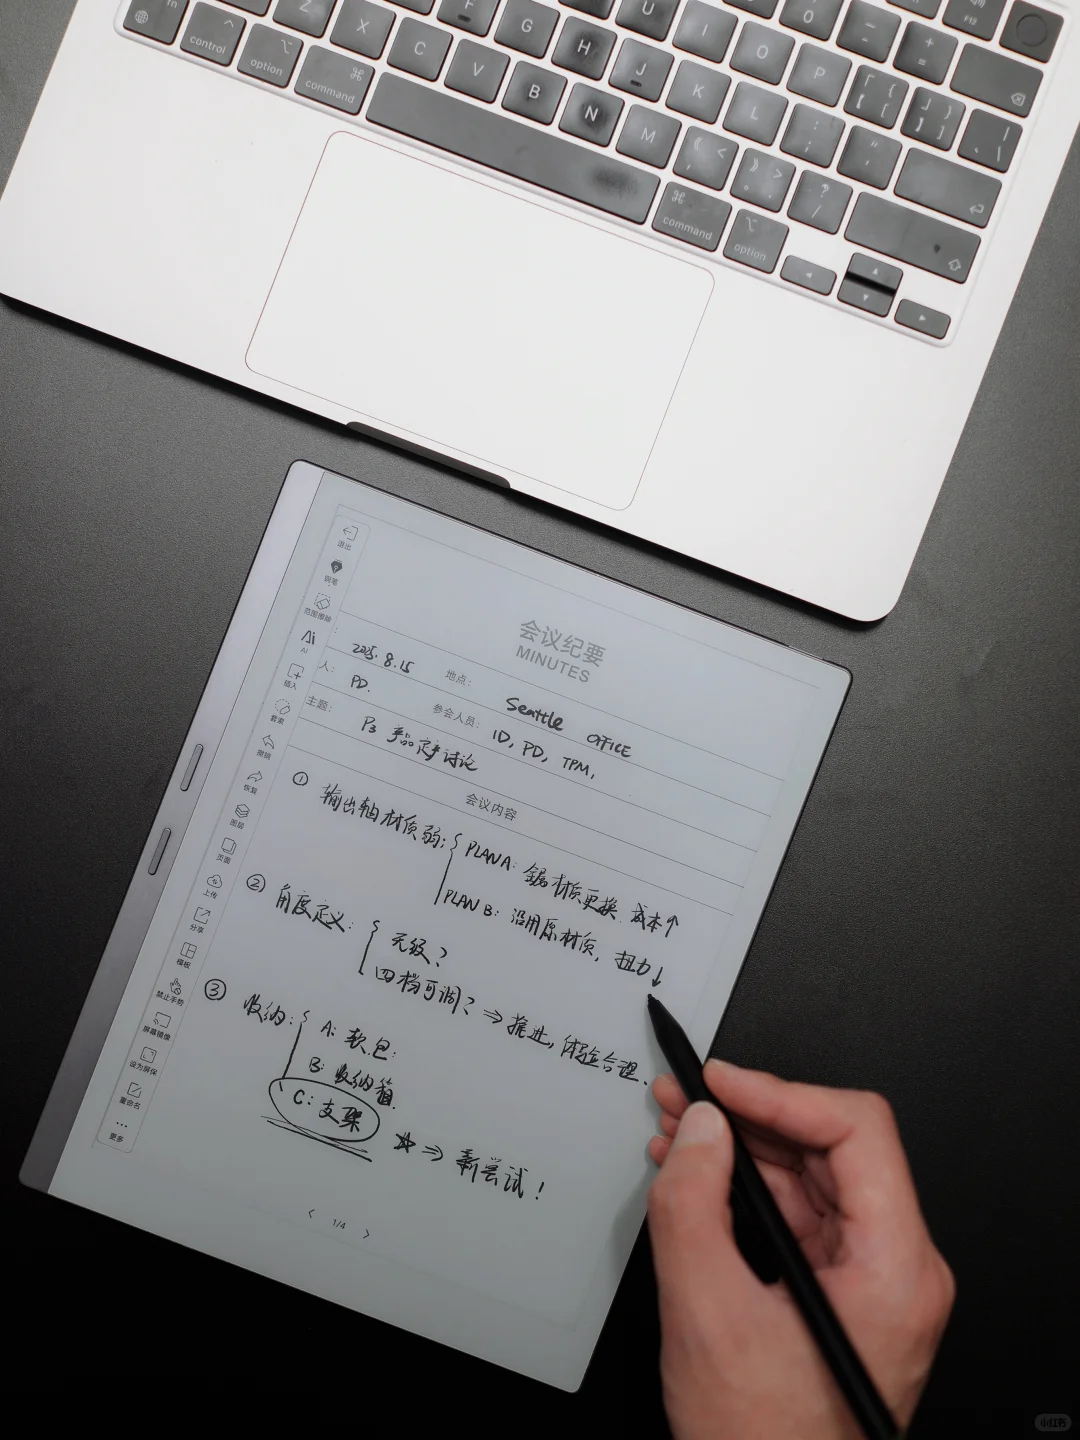 fn
control
option
⌘
command
Z X C V F G B H N U J M I K O L P
⌘
command
option
F12
退出
钢笔
范围擦除
AI
AI
插入
套索
撤销
恢复
图层
页面
上传
分享
模板
禁止手势
屏幕镜像
设为屏保
重命名
更多
会议纪要
MINUTES
2025. 8.15 地点: Seattle OFFICE
人: PD. 参会人员: ID, PD, TPM,
主题: P3 产品定义讨论
会议内容
① 输出轴材质弱: PLAN A: 材质更换 成本↑
PLAN B: 沿用原材质, 扭力↓
② 角度定义: 无级?
四档可调? ⇒ 推进, 体验合理、
③ 收纳: A: 软包:
B: 收纳箱.
C: 支架 ☆ ⇒ 新尝试!
< 1/4 >
小红书